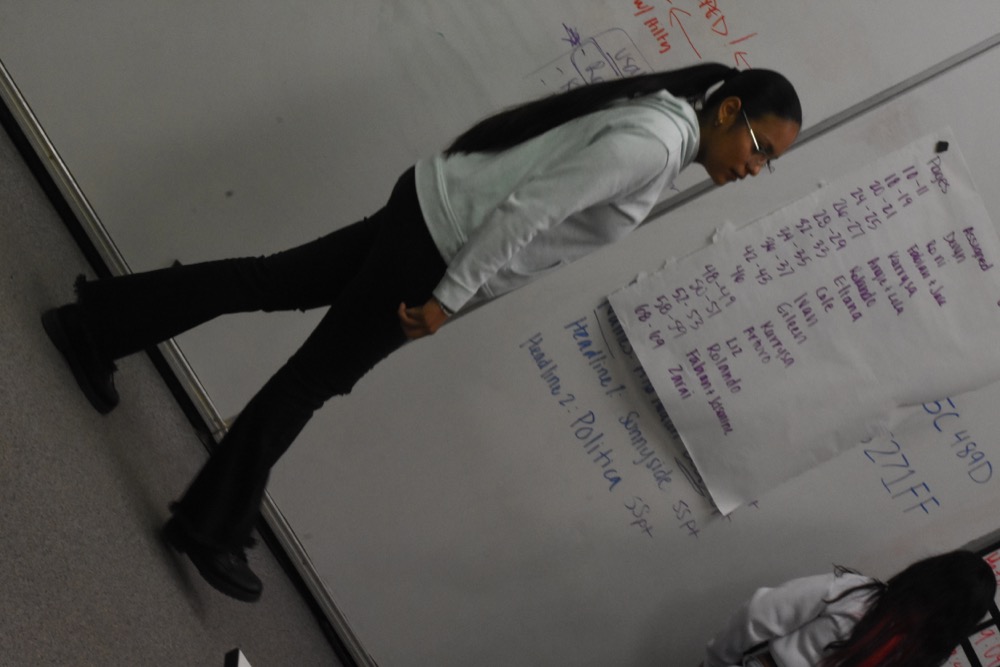 Pages Assigned
10-11 Dawn
18-19 Roni
20-21 Fabian + Jose
24-25 Karrysa
26-27 Angie + Lola
28-29 Rolando
32-33 Eliana
34-35 Cole
36-37 Ivan
42-43 Eileen
46 Karrysa
48-49 Arturo
50-51 Liz
52-53 Rolando
58-59 Fabian + Jasmine
68-69 Zarai
5C 489D
5271FF
Headline 1: Sonnyside 55pt
Headline 2: Politica 55pt
PED!
w/